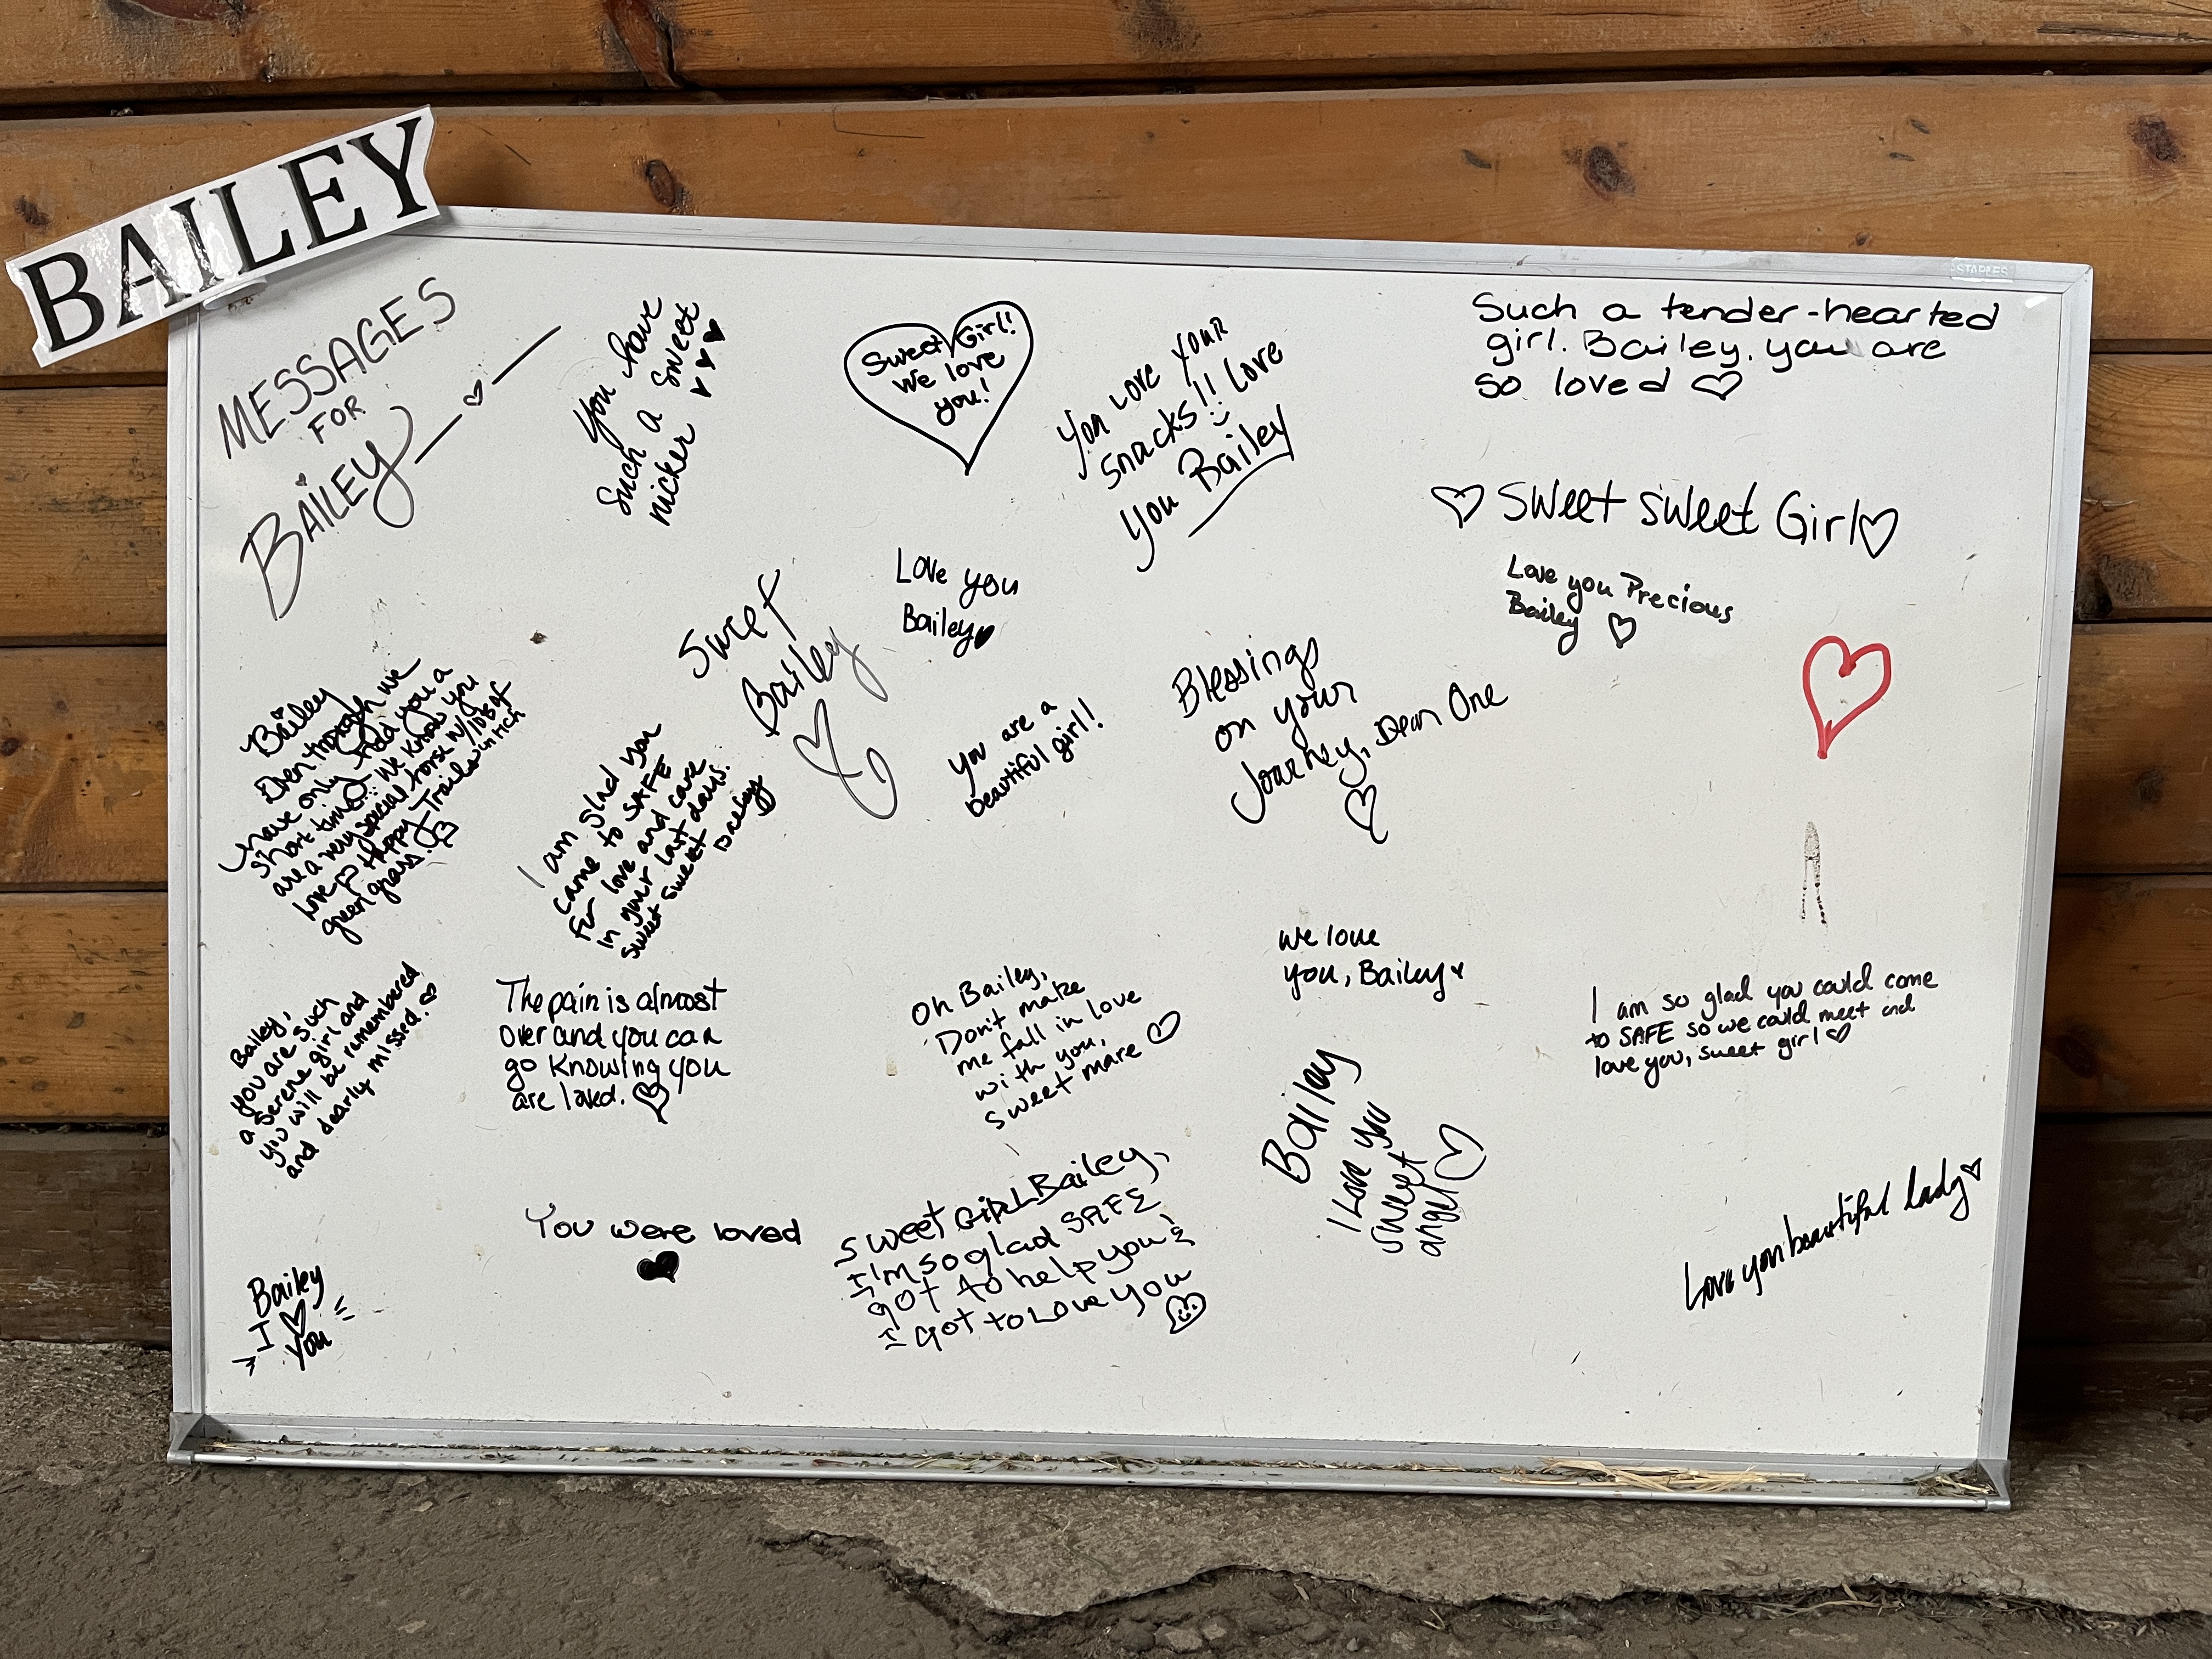 BAILEY
STAPLES
MESSAGES
FOR
BAILEY
You have
such a sweet
nicker
Sweet Girl!
we love
you!
You love your
snacks!! Love
you Bailey
Such a tender-hearted
girl. Bailey, you are
so loved
Sweet sweet Girl
Love you Precious
Bailey
Love you
Bailey
Sweet
Bailey
Bailey
Even though we
have only had you a
short time... We know you
are a very special horse w/ lots of
love Happy Trails in rich
green grass.
I am glad you
came to SAFE
for love and care
in your last days.
sweet sweet Bailey
you are a
beautiful girl!
Blessings
on your
Journey, Dear One
Bailey,
you are such
a serene girl and
you will be remembered
and dearly missed.
The pain is almost
over and you can
go knowing you
are loved.
Oh Bailey,
Don't make
me fall in love
with you,
sweet mare
we love
you, Bailey
I am so glad you could come
to SAFE so we could meet and
love you, sweet girl
Bailey
I Love you
sweet
angel
Love you beautiful lady
You were loved
Sweet GIRL Bailey,
I'm so glad SAFE
got to help you &
I got to Love you
Bailey
I
you